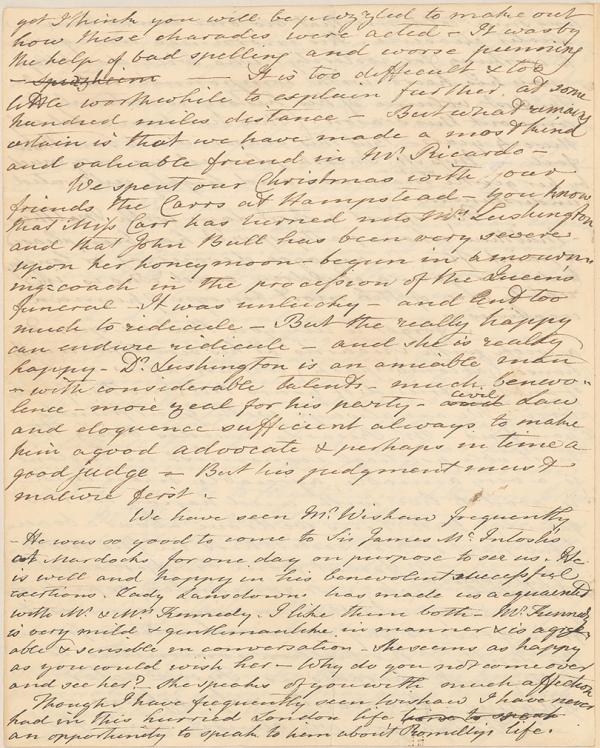 yet I think you will be puzzled to make out
how these charades were acted - It was by
the help of bad spelling and worse punning
- Spurzheim —— It is too difficult & too
little worthwhile to explain further, at some
hundred miles distance - But what remains
certain is that we have made a most kind
and valuable friend in Mr. Ricardo -
We spent our Christmas with your
friends the Carrs at Hampstead - you know
that Miss Carr has turned into Mrs. Lushington
and that John Bull has been very severe
upon her honeymoon - begun in a mourn-
ing-coach in the procession of the Queen's
funeral - It was unlucky - and lends too
much to ridicule - But the really happy
can endure ridicule - and she is really
happy - Dr. Lushington is an amiable man
- with considerable talents - much benevo-
lence - more zeal for his party - civil Law
and eloquence sufficient always to make
him a good advocate & perhaps in time a
good judge - But his judgment must
mature first. -
We have seen Mr. Wishaw frequently
- He was so good to come to Sir James McIntosh's
at Mardocks for one day on purpose to see us. He
is well and happy in his benevolent successful
exertions. Lady Lansdowne has made us acquainted
with Mr. & Mrs. Kennedy. I like them both - Mr. Kennedy
is very mild & gentlemanlike in manner & is agree-
able & sensible in conversation - She seems as happy
as you could wish her - Why do you not come over
and see her? She speaks of you with much affection
Though I have frequently seen Wishaw I have never
had in this hurried London life to speak
an opportunity to speak to him about Romilly's life.